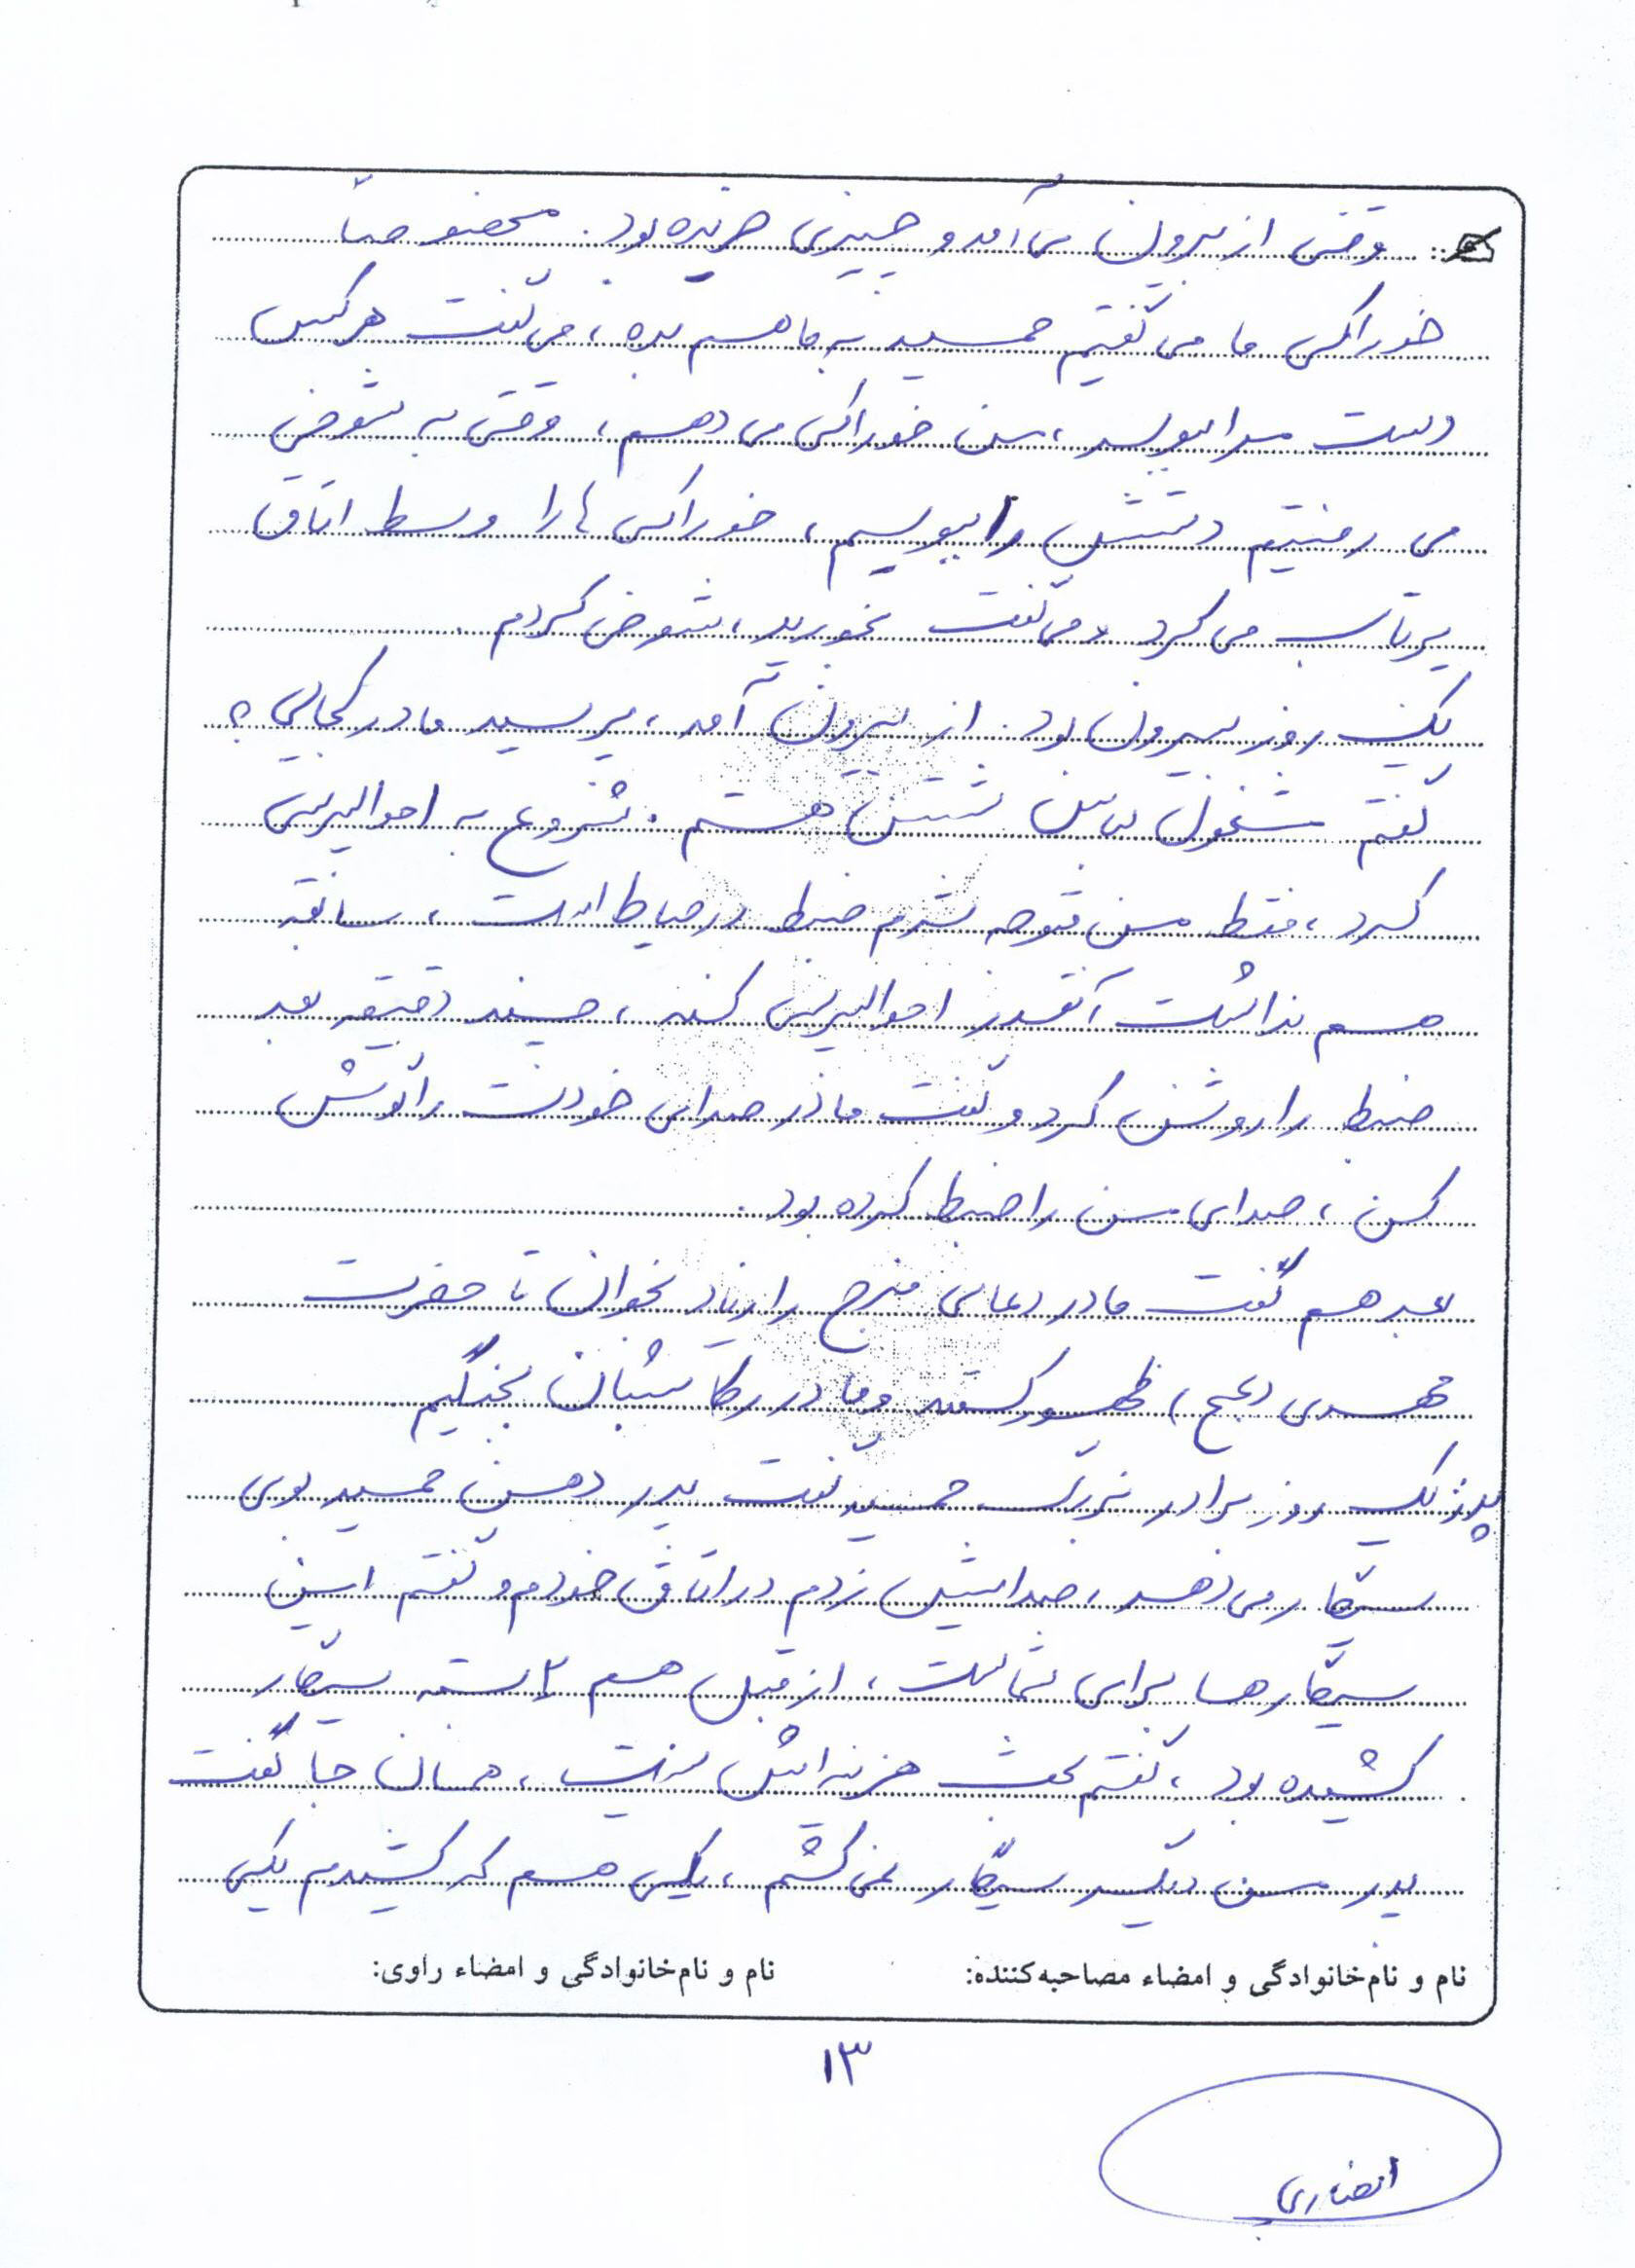 وقتی از بیرون می‌آمد و چیزی خریده بود. مخصوصاً
خوراکی ما می گفتیم حمید به ما هم بده، می گفت هر کس
دست مرا ببوسد، من خوراکی می دهم، وقتی به شوخی
می رفتیم دستش را ببوسیم، خوراکی ها را وسط اتاق
پرتاب می کرد و می گفت بخورید، شوخی کردم
یک روز بیرون بود. از بیرون آمد، پرسید مادر کجایی؟
گفتم مشغول لباس شستن هستم. شروع به احوالپرسی
کرد، فقط من متوجه شدم ضبط در حیاط است، سابقه
هم نداشت آنقدر احوالپرسی کنه، چند دقیقه بعد
ضبط را روشن کرد و گفت مادر صدای خودت را گوش
کن، صدای من را ضبط کرده بود.
بعد هم گفت مادر دعای فرج را زیاد بخوان تا حضرت
مهدی (عج) ظهور کنند و ما در رکابشان بجنگیم
پدر: یک روز برادر بزرگ حمید گفت پدر دهن حمید بوی
سیگار می دهد، صدایش زدم در اتاق خودم و گفتم این
سیگارها برای شماست، از قبل هم ۲ بسته سیگار
کشیده بود، گفتم بحث هزینه اش نیست، همان جا گفت
پدر من دیگر سیگار نمی کشم، یکی هم که کشیدم یکی
نام و نام‌خانوادگی و امضاء مصاحبه‌کننده: نام و نام‌خانوادگی و امضاء راوی:
۱۳
انصاری